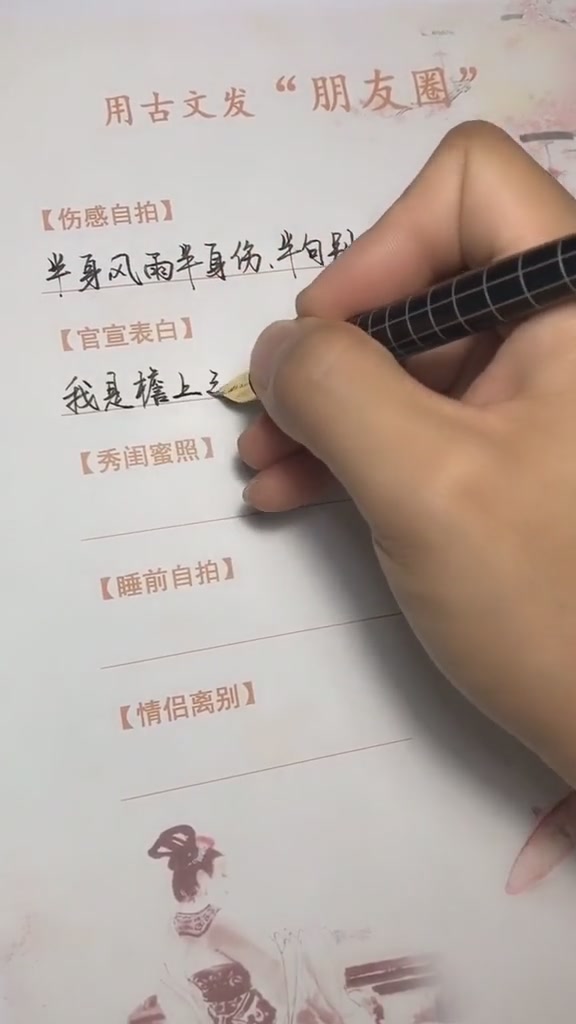 用古文发“朋友圈”
【伤感自拍】
半身风雨半身伤、半句别
【官宣表白】
我是檐上三
【秀闺蜜照】
【睡前自拍】
【情侣离别】